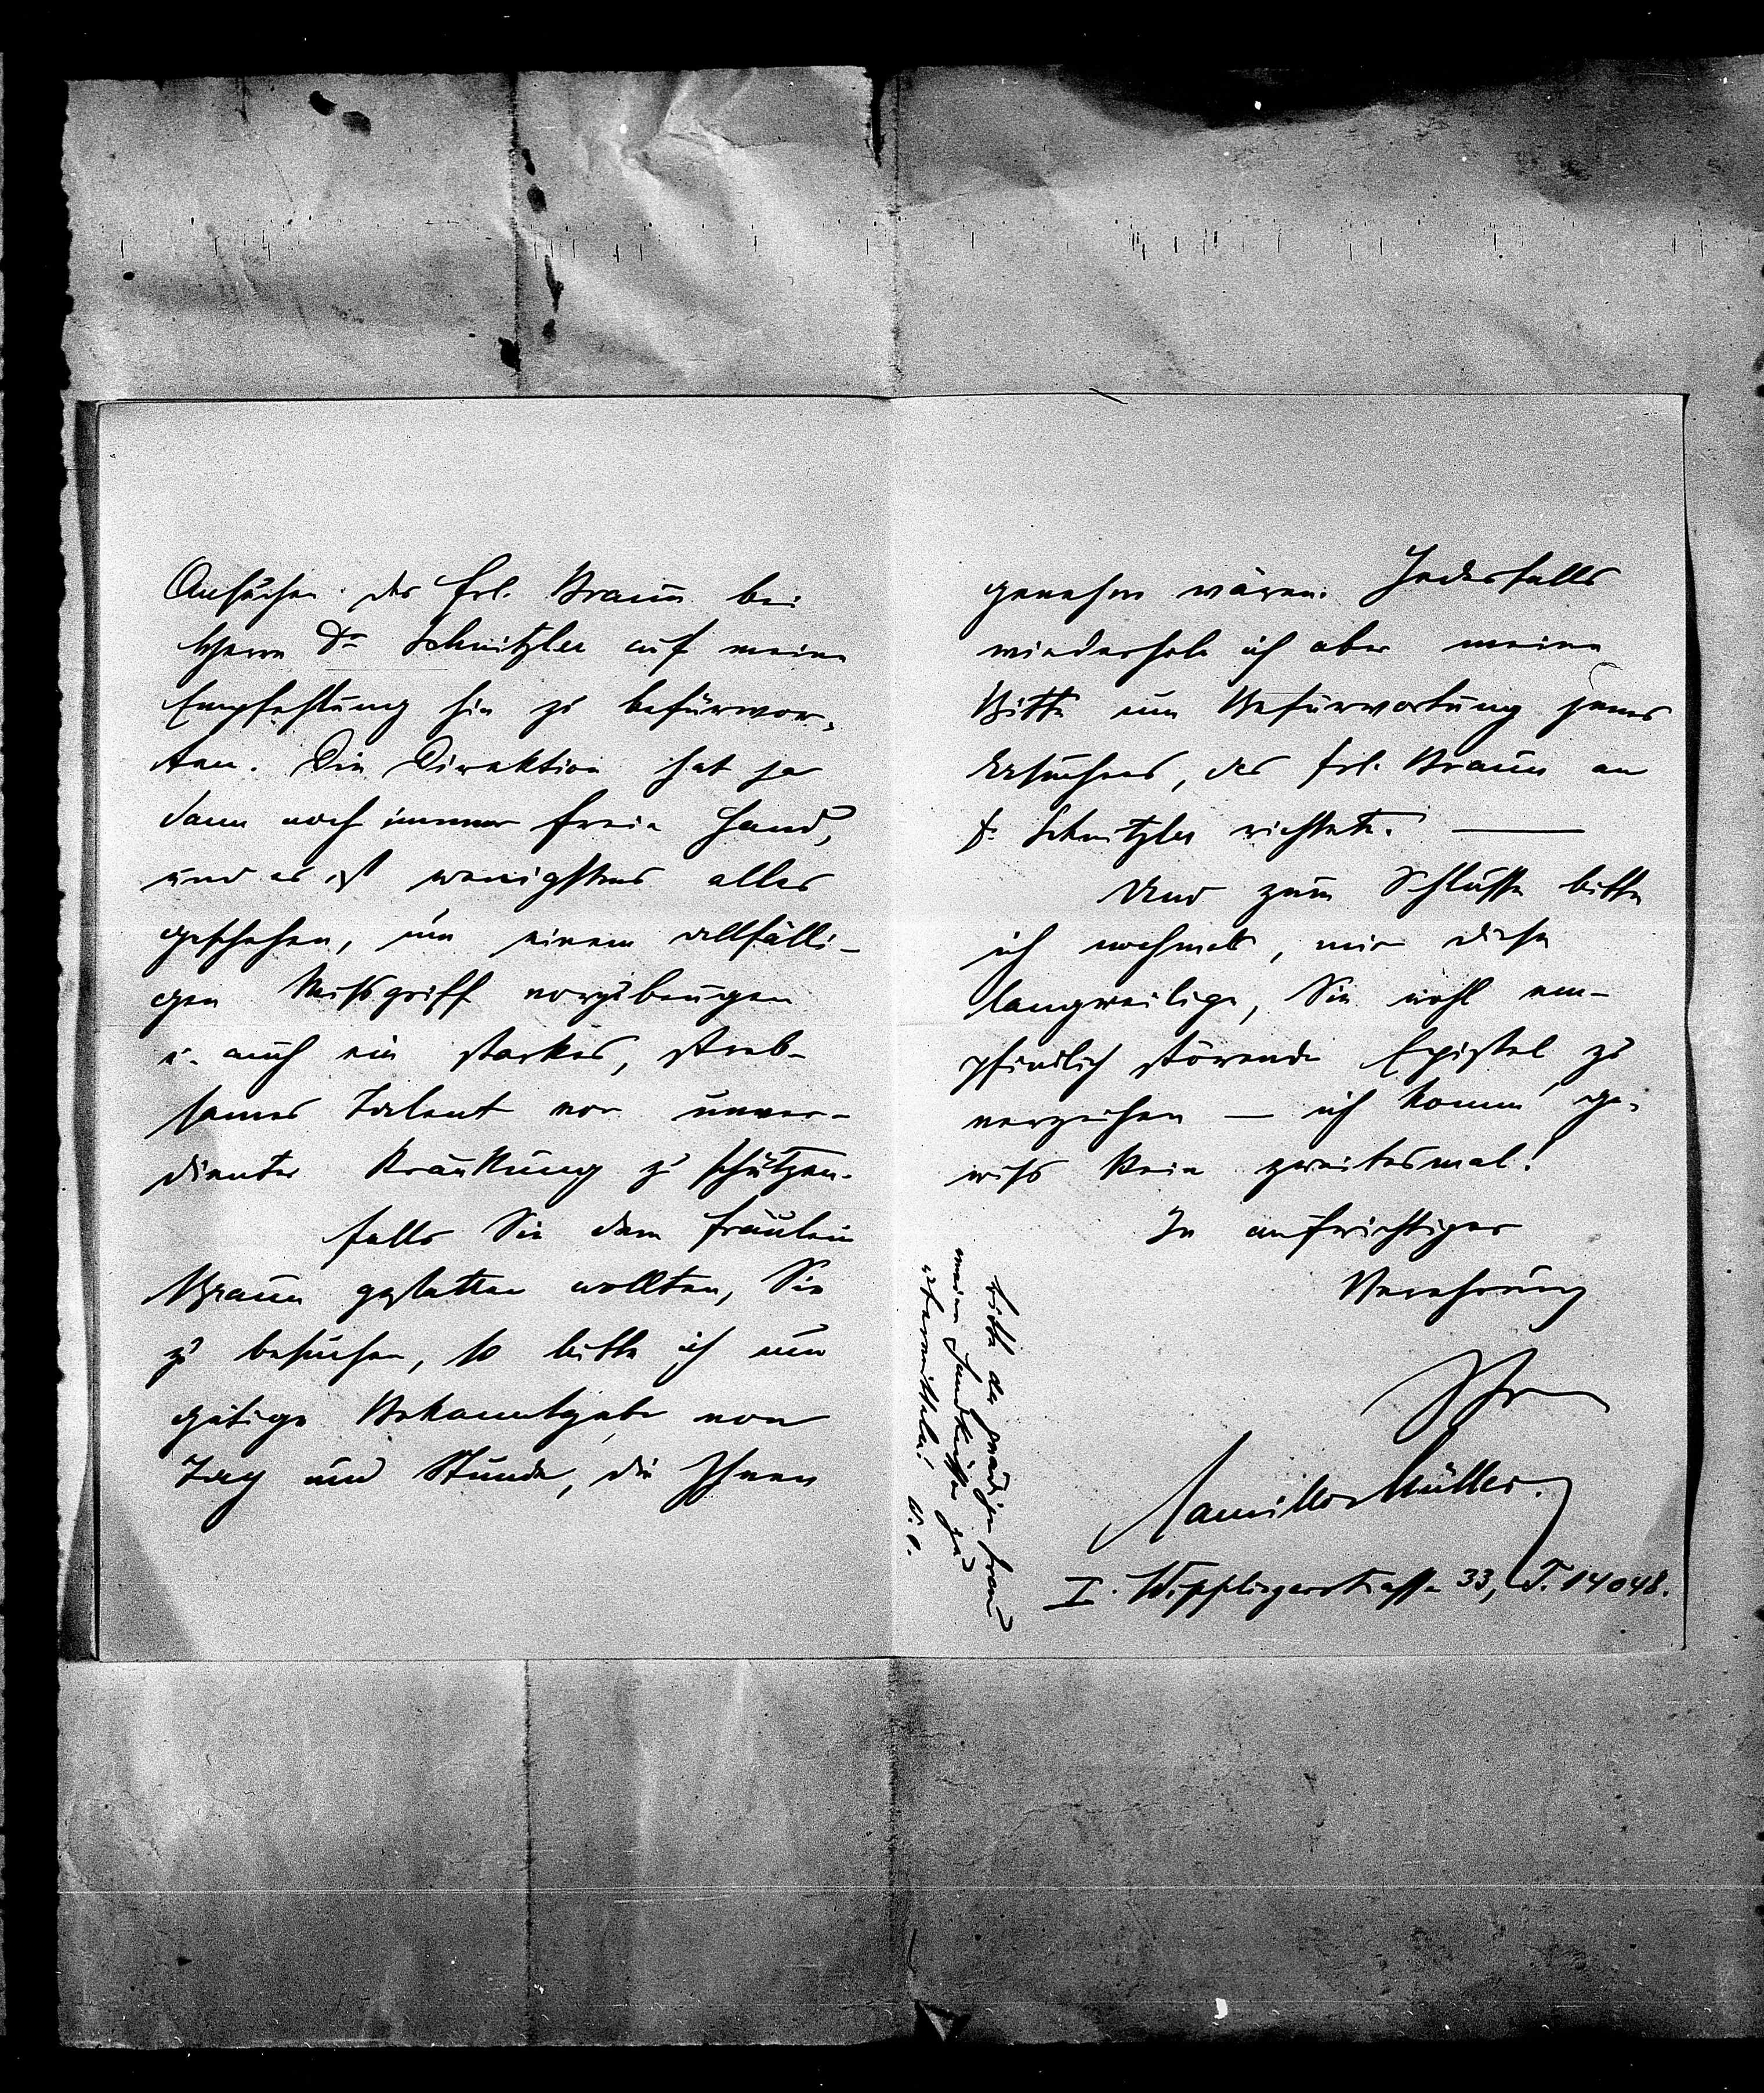 Ansuchen des Frl. Braun bei
Herrn Dr Schnitzler auf meine
Empfehlung hin zu befürwor-
ten. Die Direktion hat ja
dann noch immer freie Hand,
und es ist wenigstens alles
geschehen, um einem allfälli-
gen Missgriff vorzubeugen
u. auch ein starkes, streb-
sames Talent vor unver-
dienter Kränkung zu schützen.
Falls Sie dem Fräulein
Braun gestatten wollten, Sie
zu besuchen, so bitte ich um
gütige Bekanntgabe von
Tag und Stunde, die Ihnen
genehm wären. Jedesfalls
wiederhole ich aber meine
Bitte um Befürwortung jenes
Ersuchens, das Frl. Braun an
Dr. Schnitzler richtete. —
Und zum Schlusse bitte
ich nochmals, mir diese
langweilige, Sie wohl em-
pfindlich störende Epistel zu
verzeihen — ich komm' ge-
wiss kein zweitesmal!
In aufrichtiger
Verehrung
Ihr
Camillo Müller.
I. Wipplingerstrasse 33, T. 14048.
bitte der gnädigen Frau
meine Handküsse zu
übermitteln! D. O.